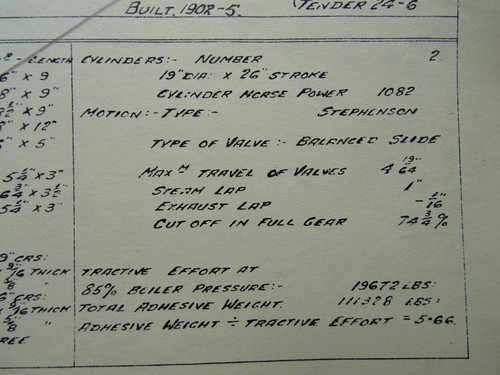 BUILT. 1902-5.
(TENDER 24-6
LENGTH
6" X 9
8" X 9"
8½" X 9"
8" X 12"
6" X 5"
5¼" X 3"
6¾" X 3½"
5¼" X 3"
9" CRS:
9/16 THICK
5/8 "
6" CRS:
5/16 THICK
5/8 "
REE
CYLINDERS:- NUMBER 2.
19" DIA: X 26" STROKE
CYLINDER HORSE POWER 1082
MOTION:- TYPE:- STEPHENSON
TYPE OF VALVE:- BALANCED SLIDE
MAX M TRAVEL OF VALVES 4 19/64"
STEAM LAP 1"
EXHAUST LAP -1/16"
CUT OFF IN FULL GEAR 74¾%
TRACTIVE EFFORT AT
85% BOILER PRESSURE:- 19672 LBS:
TOTAL ADHESIVE WEIGHT. 111328 LBS:
ADHESIVE WEIGHT ÷ TRACTIVE EFFORT = 5.66.